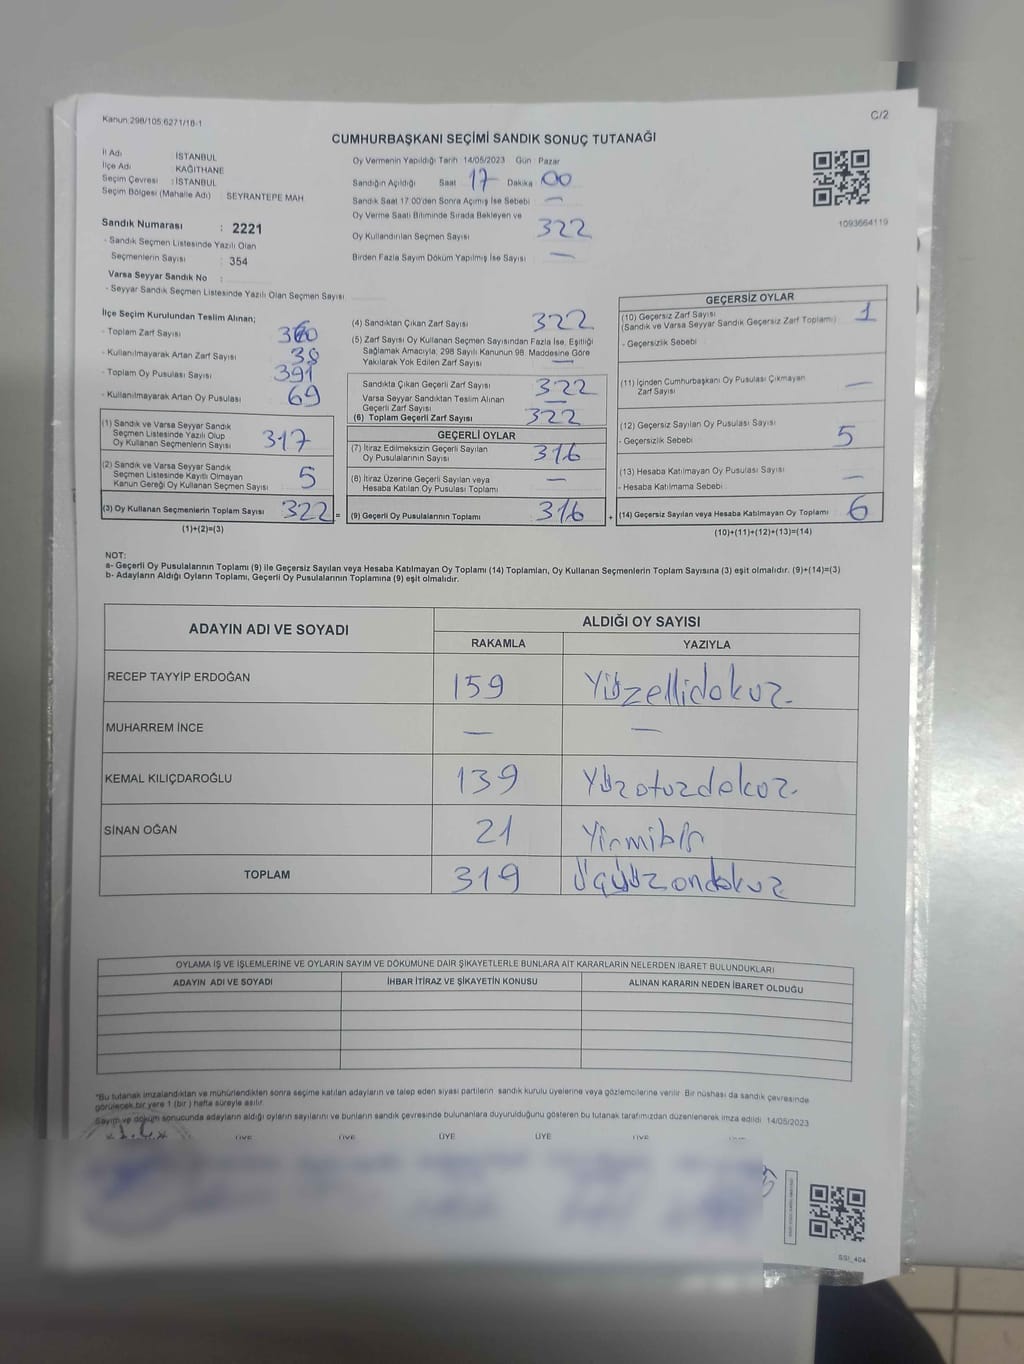 Kanun:298/105 6271/18-1
C/2
CUMHURBAŞKANI SEÇİMİ SANDIK SONUÇ TUTANAĞI
İl Adı : İSTANBUL
İlçe Adı : KAĞITHANE
Seçim Çevresi : İSTANBUL
Seçim Bölgesi (Mahalle Adı) : SEYRANTEPE MAH
Sandık Numarası : 2221
- Sandık Seçmen Listesinde Yazılı Olan
Seçmenlerin Sayısı : 354
Varsa Seyyar Sandık No :
- Seyyar Sandık Seçmen Listesinde Yazılı Olan Seçmen Sayısı
Oy Vermenin Yapıldığı Tarih : 14/05/2023 Gün : Pazar
Sandığın Açıldığı Saat 17 Dakika 00
Sandık Saat 17.00'den Sonra Açımış İse Sebebi —
Oy Verme Saati Bitiminde Sırada Bekleyen ve
Oy Kullandırılan Seçmen Sayısı 322
Birden Fazla Sayım Döküm Yapılmış İse Sayısı —
1093664119
İlçe Seçim Kurulundan Teslim Alınan;
- Toplam Zarf Sayısı 360
- Kullanılmayarak Artan Zarf Sayısı 38
- Toplam Oy Pusulası Sayısı 391
- Kullanılmayarak Artan Oy Pusulası 69
(1) Sandık ve Varsa Seyyar Sandık
Seçmen Listesinde Yazılı Olup
Oy Kullanan Seçmenlerin Sayısı 317
(2) Sandık ve Varsa Seyyar Sandık
Seçmen Listesinde Kayıtlı Olmayan
Kanun Gereği Oy Kullanan Seçmen Sayısı 5
(3) Oy Kullanan Seçmenlerin Toplam Sayısı 322 =
(1)+(2)=(3)
(4) Sandıktan Çıkan Zarf Sayısı 322
(5) Zarf Sayısı Oy Kullanan Seçmen Sayısından Fazla İse, Eşitliği
Sağlamak Amacıyla; 298 Sayılı Kanunun 98. Maddesine Göre
Yakılarak Yok Edilen Zarf Sayısı —
Sandıkta Çıkan Geçerli Zarf Sayısı 322
Varsa Seyyar Sandıktan Teslim Alınan
Geçerli Zarf Sayısı —
(6) Toplam Geçerli Zarf Sayısı 322
GEÇERLİ OYLAR
(7) İtiraz Edilmeksizin Geçerli Sayılan
Oy Pusulalarının Sayısı 316
(8) İtiraz Üzerine Geçerli Sayılan veya
Hesaba Katılan Oy Pusulası Toplamı —
(9) Geçerli Oy Pusulalarının Toplamı 316 +
GEÇERSİZ OYLAR
(10) Geçersiz Zarf Sayısı 1
(Sandık ve Varsa Seyyar Sandık Geçersiz Zarf Toplamı)
- Geçersizlik Sebebi
(11) İçinden Cumhurbaşkanı Oy Pusulası Çıkmayan
Zarf Sayısı —
(12) Geçersiz Sayılan Oy Pusulası Sayısı 5
- Geçersizlik Sebebi
(13) Hesaba Katılmayan Oy Pusulası Sayısı —
- Hesaba Katılmama Sebebi
(14) Geçersiz Sayılan veya Hesaba Katılmayan Oy Toplamı 6
(10)+(11)+(12)+(13)=(14)
NOT:
a- Geçerli Oy Pusulalarının Toplamı (9) ile Geçersiz Sayılan veya Hesaba Katılmayan Oy Toplamı (14) Toplamları, Oy Kullanan Seçmenlerin Toplam Sayısına (3) eşit olmalıdır. (9)+(14)=(3)
b- Adayların Aldığı Oyların Toplamı, Geçerli Oy Pusulalarının Toplamına (9) eşit olmalıdır.
ADAYIN ADI VE SOYADI ALDIĞI OY SAYISI
RAKAMLA YAZIYLA
RECEP TAYYİP ERDOĞAN 159 Yüzellidokuz
MUHARREM İNCE — —
KEMAL KILIÇDAROĞLU 139 Yüzotuzdokuz
SİNAN OĞAN 21 Yirmibir
TOPLAM 319 Üçyüzondokuz
OYLAMA İŞ VE İŞLEMLERİNE VE OYLARIN SAYIM VE DÖKÜMÜNE DAİR ŞİKAYETLERLE BUNLARA AİT KARARLARIN NELERDEN İBARET BULUNDUKLARI
ADAYIN ADI VE SOYADI İHBAR İTİRAZ VE ŞİKAYETİN KONUSU ALINAN KARARIN NEDEN İBARET OLDUĞU
*Bu tutanak imzalandıktan ve mühürlendikten sonra seçime katılan adayların ve talep eden siyasi partilerin sandık kurulu üyelerine veya gözlemcilerine verilir. Bir nüshası da sandık çevresinde
görülecek bir yere 1 (bir) hafta süreyle asılır.
Sayım ve döküm sonucunda adayların aldığı oyların sayılarını ve bunların sandık çevresinde bulunanlara duyurulduğunu gösteren bu tutanak tarafımızdan düzenlenerek imza edildi. 14/05/2023
ÜYE ÜYE ÜYE ÜYE ÜYE
SSI_404